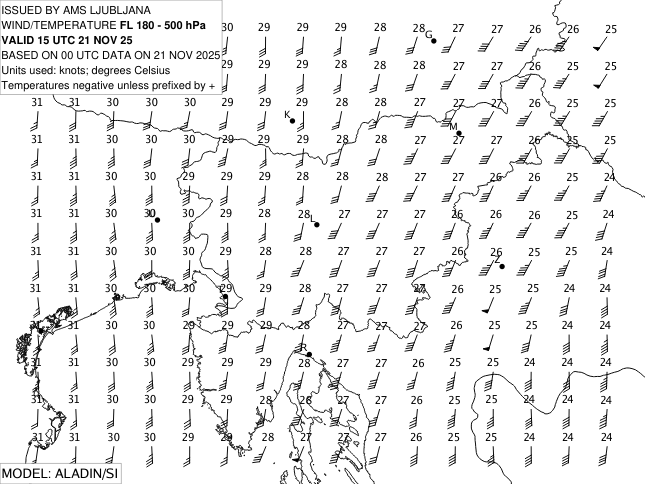 ISSUED BY AMS LJUBLJANA
WIND/TEMPERATURE FL 180 - 500 hPa
VALID 15 UTC 21 NOV 25
BASED ON 00 UTC DATA ON 21 NOV 2025
Units used: knots; degrees Celsius
Temperatures negative unless prefixed by +
30 29 29 29 28 28 27 27 26 26 25
G
29 29 29 28 28 28 27 27 26 25 25
31 31 30 30 30 29 29 29 28 28 27 27 27 26 25 25
K
M
31 31 30 30 30 29 29 29 28 28 27 27 27 26 25 25
31 31 30 30 30 29 29 28 28 28 27 27 26 26 25 24
31 31 30 30 30 29 28 28 27 27 27 26 26 26 25 24
L
31 31 30 30 30 29 28 28 27 27 27 26 26 25 25 24
Z
31 31 30 30 30 29 29 28 27 27 27 26 25 25 24 24
31 31 30 30 29 29 29 28 27 27 27 26 25 25 24 24
R
31 31 30 30 29 29 29 28 27 27 26 25 25 24 24 24
31 31 30 30 29 29 28 28 27 27 26 25 25 24 24 24
31 31 30 30 29 29 28 27 27 27 26 25 25 24 24 24
MODEL: ALADIN/SI